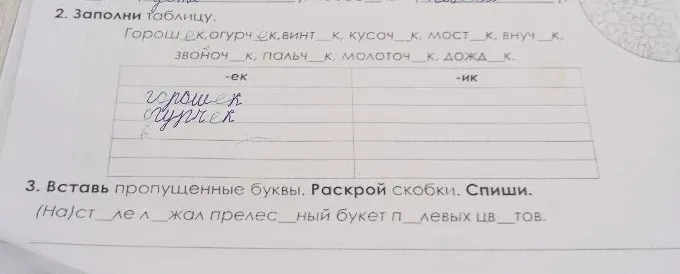 2. Заполни таблицу.
Горош ек,огурч ек,винт__к, кусоч__к, мост__к, внуч__к,
звоноч__к, пальч__к, молоточ__к, дожд__к.
-ек -ик
горошек
огурчек
3. Вставь пропущенные буквы. Раскрой скобки. Спиши.
(На)ст__ле л__жал прелес__ный букет п__левых цв__тов.